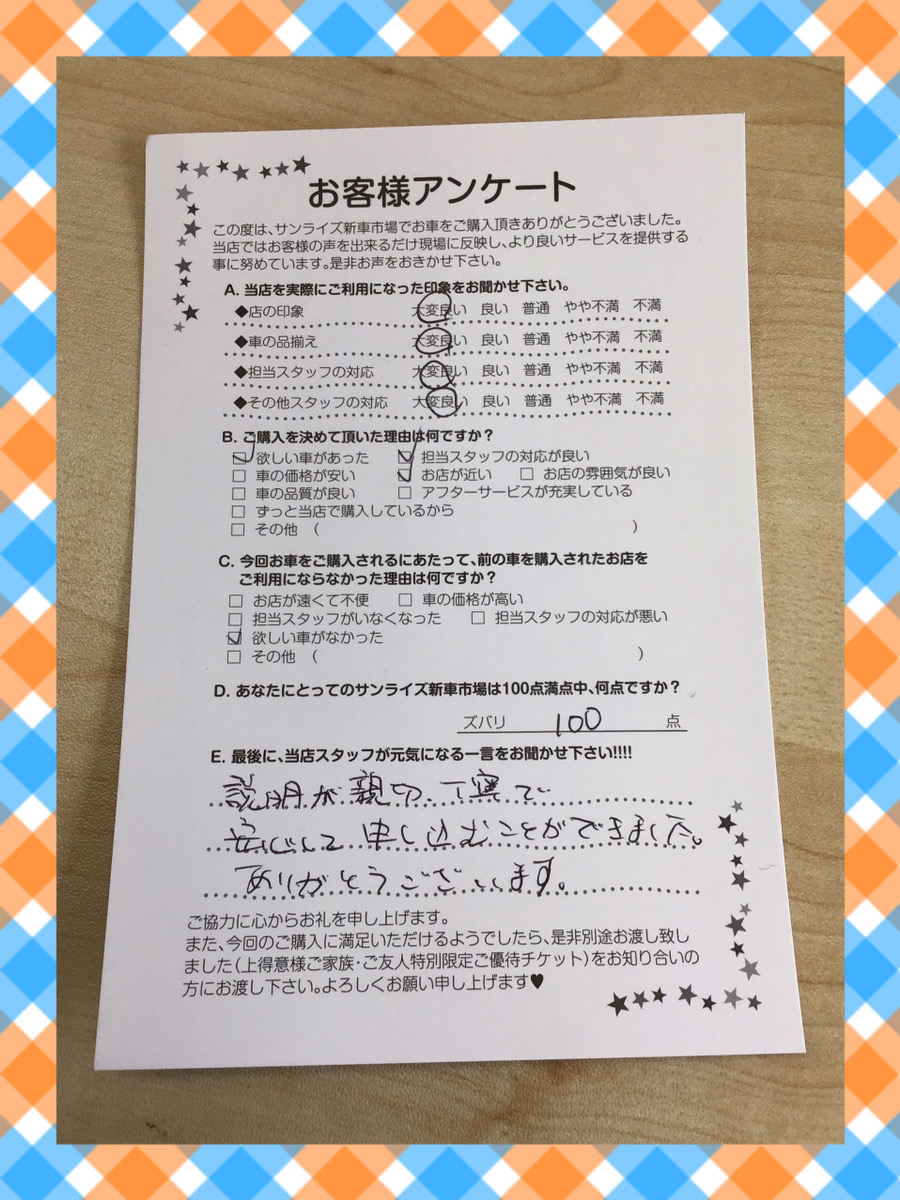 お客様アンケート
この度は、サンライズ新車市場でお車をご購入頂きありがとうございました。
当店ではお客様の声を出来るだけ現場に反映し、より良いサービスを提供する
事に努めています。是非お声をおきかせ下さい。
A. 当店を実際にご利用になった印象をお聞かせ下さい。
◆店の印象 大変良い 良い 普通 やや不満 不満
◆車の品揃え 大変良い 良い 普通 やや不満 不満
◆担当スタッフの対応 大変良い 良い 普通 やや不満 不満
◆その他スタッフの対応 大変良い 良い 普通 やや不満 不満
B. ご購入を決めて頂いた理由は何ですか？
☑ 欲しい車があった ☑ 担当スタッフの対応が良い
□ 車の価格が安い ☑ お店が近い □ お店の雰囲気が良い
□ 車の品質が良い □ アフターサービスが充実している
□ ずっと当店で購入しているから
□ その他 （ ）
C. 今回お車をご購入されるにあたって、前の車を購入されたお店を
ご利用にならなかった理由は何ですか？
□ お店が遠くて不便 □ 車の価格が高い
□ 担当スタッフがいなくなった □ 担当スタッフの対応が悪い
☑ 欲しい車がなかった
□ その他 （ ）
D. あなたにとってのサンライズ新車市場は100点満点中、何点ですか？
ズバリ 100 点
E. 最後に、当店スタッフが元気になる一言をお聞かせ下さい!!!!
説明が親切、丁寧で
安心して申し込むことができました。
ありがとうございます。
ご協力に心からお礼を申し上げます。
また、今回のご購入に満足いただけるようでしたら、是非別途お渡し致し
ました（上得意様ご家族・ご友人特別限定ご優待チケット）をお知り合いの
方にお渡し下さい。よろしくお願い申し上げます♥